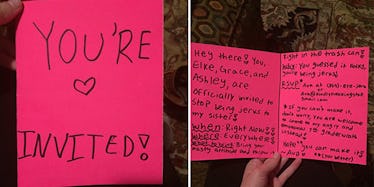 YOU'RE
INVITED!
Hey there! You,
Elke, Grace, and
Ashley, are
officially invited to
stop being jerks to
my sister!
When: Right Now!
Where: Everywhere!
What to bring: Bring your
nasty attitude and throw it
Right in the trash can!
Why: You guessed it folks,
you're being jerks!
RSVP
gmail.com
*If you can't make it,
don't worry. You are welcome
to come to my angry and
instead!
Hope you can make it!
~Ava